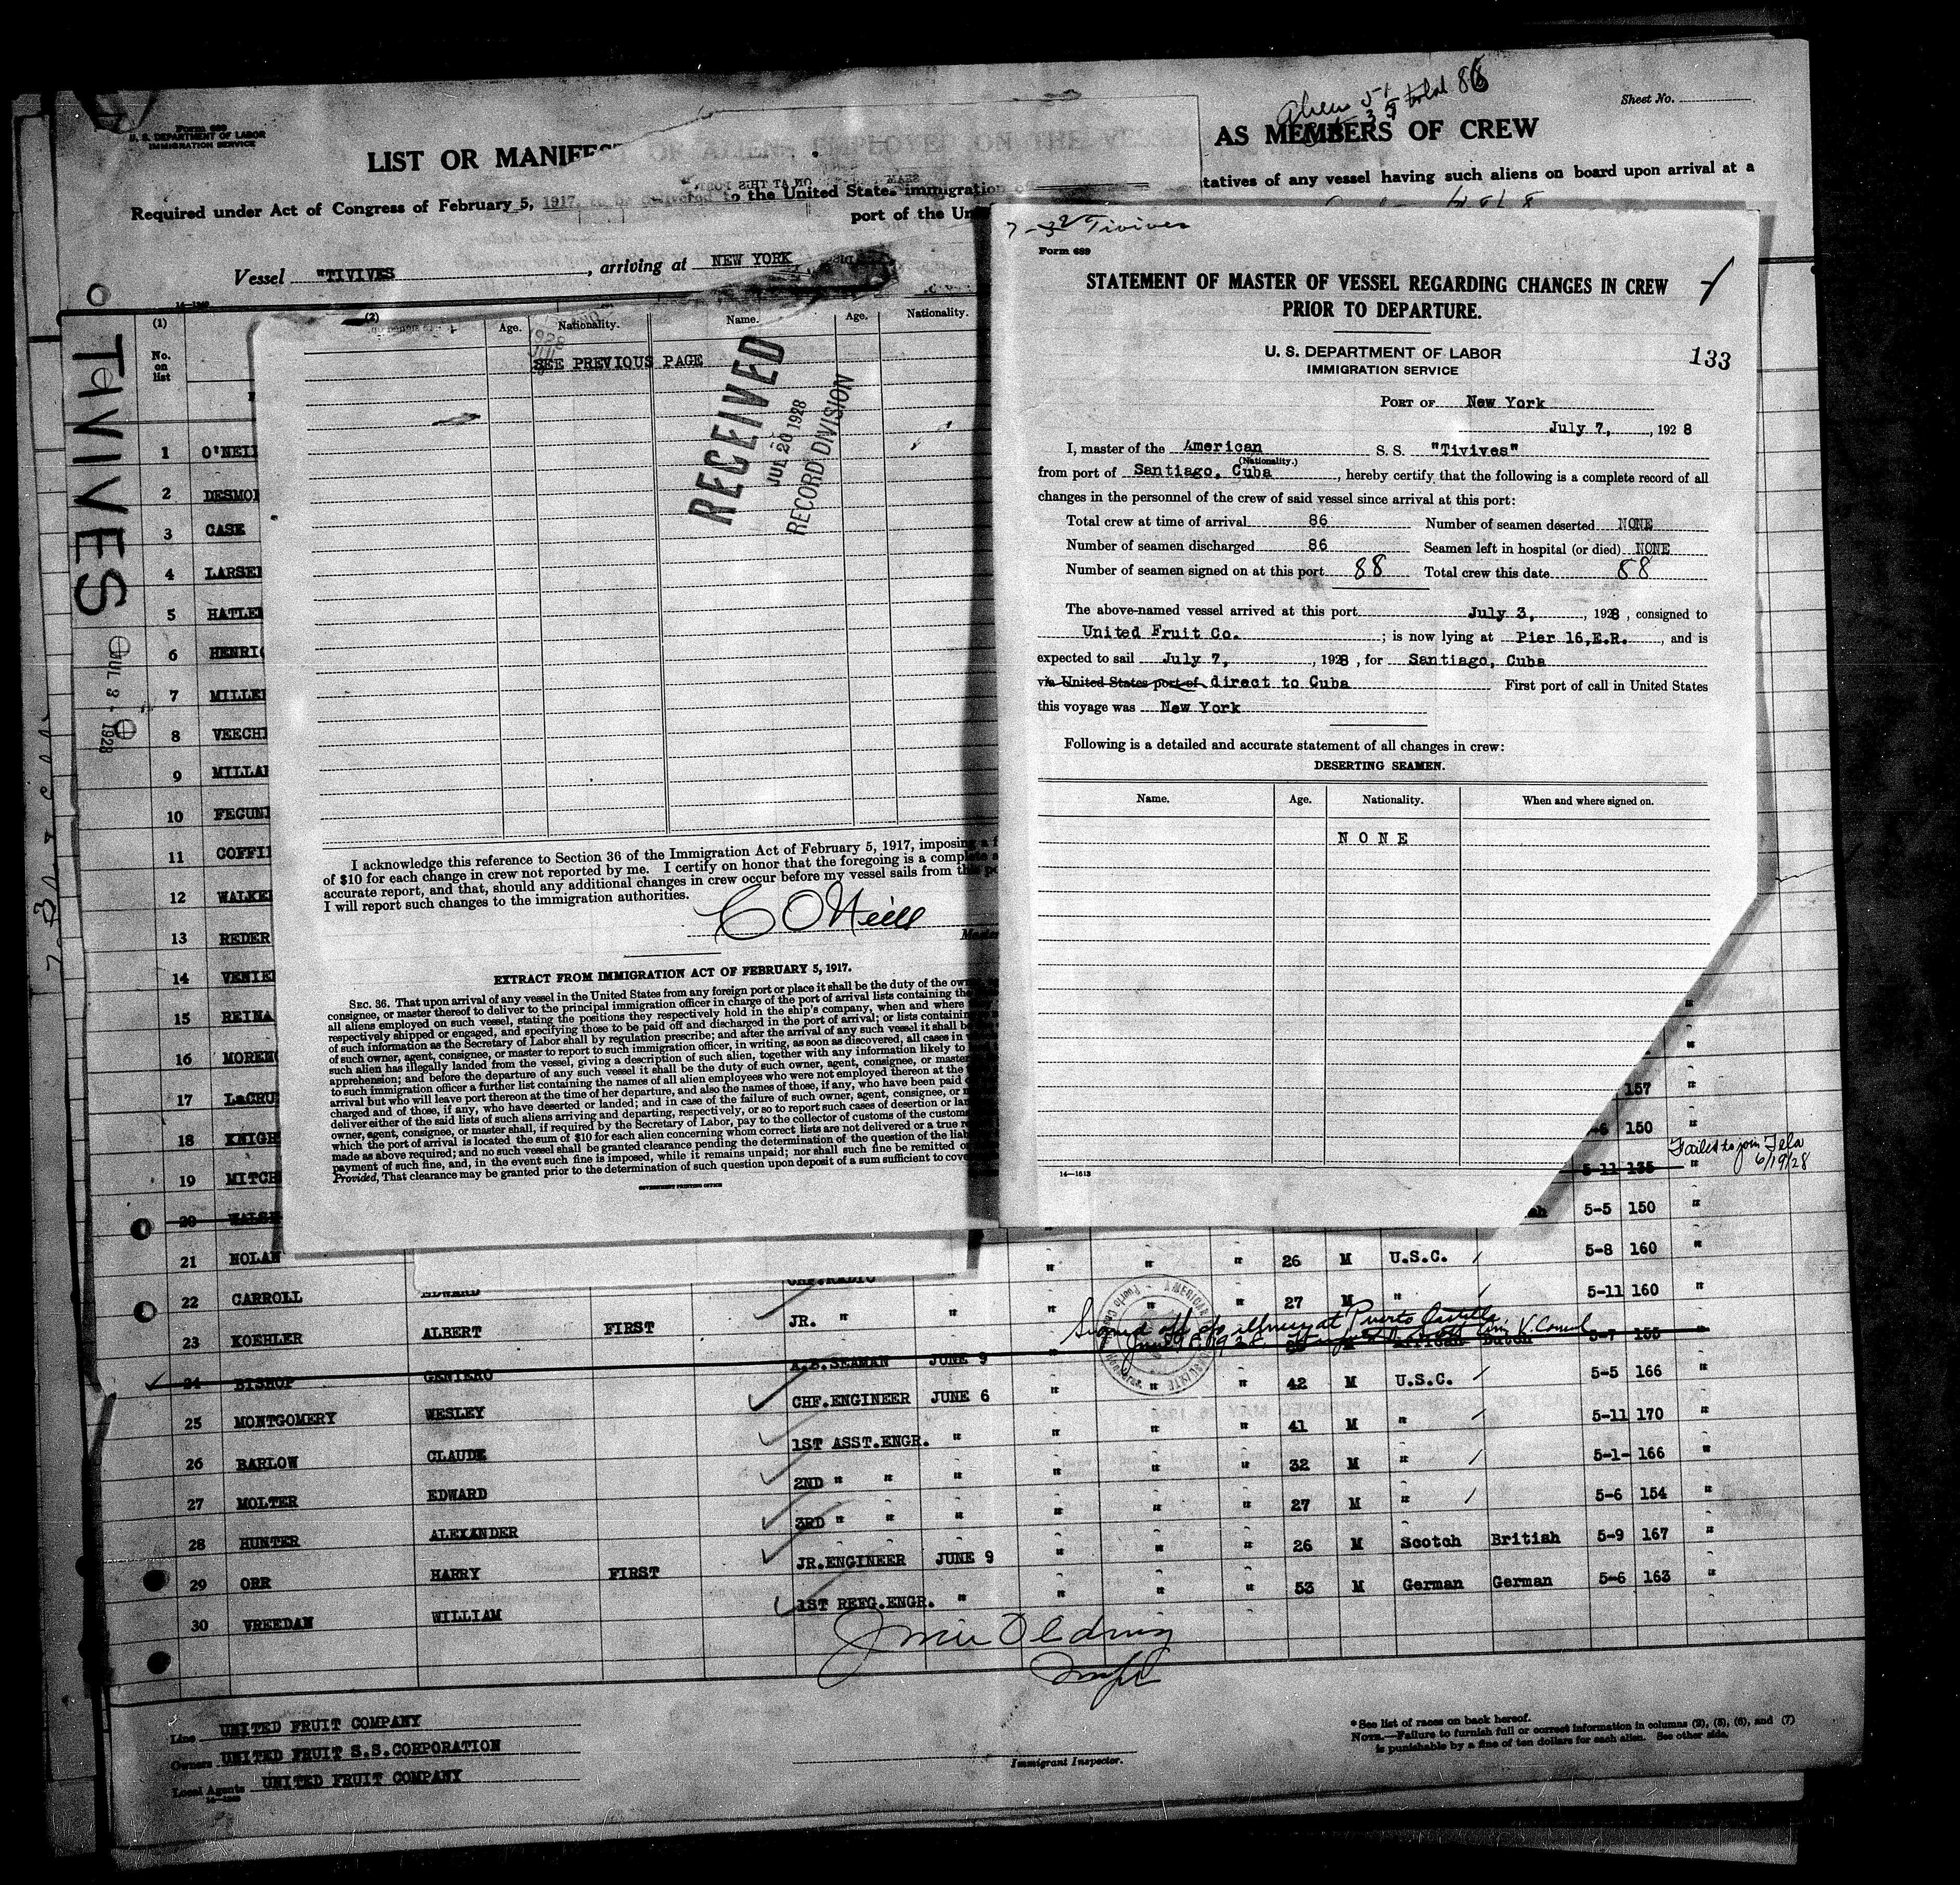 Form 689
U. S. DEPARTMENT OF LABOR
IMMIGRATION SERVICE
Sheet No.
total 86
LIST OR MANIFEST OF ALIENS EMPLOYED ON THE AS MEMBERS OF CREW
Required under Act of Congress of February 5, 1917, to be delivered to the United States immigration
tatives of any vessel having such aliens on board upon arrival at a
port of the Un
Vessel "TIVIVES , arriving at NEW YORK
TIVIVES
JUL 3 - 1928
(1)
No. on list
1 O'NEIL
2 DESMO
3 CASE
4 LARSE
5 HATLE
6 HENRI
7 MILLE
8 VEECH
9 MILLA
10 FECUN
11 COFFI
12 WALKE
13 REDER
14 VENIE
15 REINA
16 MOREN
17 LaCRU
18 KNIGH
19 MITCH
20 WALSH
21 NOLAN
157 "
150 "
5-11 135 " Failed to join Tela
6/19/28
5-5 150 "
" " " 26 M U.S.C. / 5-8 160 "
22 CARROLL EDWARD CHF.RADIO " " " 27 M " / 5-11 160 "
23 KOEHLER ALBERT FIRST JR. " "
Signed off a/c illness at Puerto Castilla
V. Consul
24 BISHOP GENIERO A.B.SEAMAN JUNE 9 " M African Dutch 5-7 155
25 MONTGOMERY WESLEY CHF.ENGINEER JUNE 6 " " " 42 M U.S.C. / 5-5 166 "
26 BARLOW CLAUDE 1ST ASST.ENGR. " " " " 41 M " / 5-11 170 "
27 MOLTER EDWARD 2ND " " " " " " 32 M " / 5-1- 166 "
28 HUNTER ALEXANDER 3RD " " " " " " 27 M " / 5-6 154 "
29 ORR HARRY FIRST JR.ENGINEER JUNE 9 " " " 26 M Scotch British 5-9 167 "
30 VREEDAN WILLIAM 1ST REFG.ENGR. " " " " 53 M German German 5-6 163 "
Line UNITED FRUIT COMPANY
Owners UNITED FRUIT S.S.CORPORATION
Local Agents UNITED FRUIT COMPANY
Immigrant Inspector.
*See list of races on back hereof.
NOTE.—Failure to furnish full or correct information in columns (2), (5), (6), and (7)
is punishable by a fine of ten dollars for each alien. See other side.
(2) Age. Nationality. Name. Age. Nationality.
SEE PREVIOUS PAGE
RECEIVED
JUL 20 1928
RECORD DIVISION
I acknowledge this reference to Section 36 of the Immigration Act of February 5, 1917, imposing a f
of $10 for each change in crew not reported by me. I certify on honor that the foregoing is a complete a
accurate report, and that, should any additional changes in crew occur before my vessel sails from this po
I will report such changes to the immigration authorities.
C O'Neill
Master
EXTRACT FROM IMMIGRATION ACT OF FEBRUARY 5, 1917.
SEC. 36. That upon arrival of any vessel in the United States from any foreign port or place it shall be the duty of the own
consignee, or master thereof to deliver to the principal immigration officer in charge of the port of arrival lists containing the
all aliens employed on such vessel, stating the positions they respectively hold in the ship's company, when and where
respectively shipped or engaged, and specifying those to be paid off and discharged in the port of arrival; or lists containin
of such information as the Secretary of Labor shall by regulation prescribe; and after the arrival of any such vessel it shall be
of such owner, agent, consignee, or master to report to such immigration officer, in writing, as soon as discovered, all cases in
such alien has illegally landed from the vessel, giving a description of such alien, together with any information likely to
apprehension; and before the departure of any such vessel it shall be the duty of such owner, agent, consignee, or master
to such immigration officer a further list containing the names of all alien employees who were not employed thereon at the
arrival but who will leave port thereon at the time of her departure, and also the names of those, if any, who have been paid
charged and of those, if any, who have deserted or landed; and in case of the failure of such owner, agent, consignee, or m
deliver either of the said lists of such aliens arriving and departing, respectively, or so to report such cases of desertion or lan
owner, agent, consignee, or master shall, if required by the Secretary of Labor, pay to the collector of customs of the customs
which the port of arrival is located the sum of $10 for each alien concerning whom correct lists are not delivered or a true re
made as above required; and no such vessel shall be granted clearance pending the determination of the question of the liab
payment of such fine, and, in the event such fine is imposed, while it remains unpaid; nor shall such fine be remitted or
Provided, That clearance may be granted prior to the determination of such question upon deposit of a sum sufficient to cove
GOVERNMENT PRINTING OFFICE
7-3 Tivives
Form 689
STATEMENT OF MASTER OF VESSEL REGARDING CHANGES IN CREW
PRIOR TO DEPARTURE.
U. S. DEPARTMENT OF LABOR
IMMIGRATION SERVICE
133
PORT OF New York
July 7, , 1928
I, master of the American S. S. "Tivives"
(Nationality.)
from port of Santiago, Cuba , hereby certify that the following is a complete record of all
changes in the personnel of the crew of said vessel since arrival at this port:
Total crew at time of arrival 86 Number of seamen deserted NONE
Number of seamen discharged 86 Seamen left in hospital (or died) NONE
Number of seamen signed on at this port 88 Total crew this date 88
The above-named vessel arrived at this port July 3, , 1928 , consigned to
United Fruit Co. ; is now lying at Pier 16,E.R. , and is
expected to sail July 7, , 1928 , for Santiago, Cuba
via United States port of direct to Cuba First port of call in United States
this voyage was New York
Following is a detailed and accurate statement of all changes in crew:
DESERTING SEAMEN.
Name. Age. Nationality. When and where signed on.
N O N E
14—1513